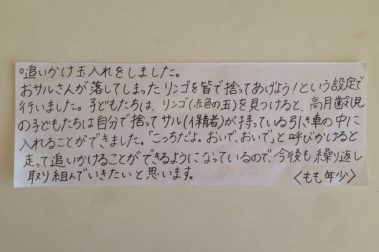 ○追いかけ玉入れをしました。
おサルさんが落してしまったリンゴを皆で捨ってあげよう！という設定で
行いました。子どもたちは、リンゴ(赤色の玉)を見つけると、高月齢児
の子どもたちは自分で捨ってサル(保育者)が持っている引き車の中に
入れることができました。「こっちだよ。おいで、おいで」と呼びかけると
走って追いかけることができるようになっているので、今後も繰り返し
取り組んでいきたいと思います。
〈もも年少〉